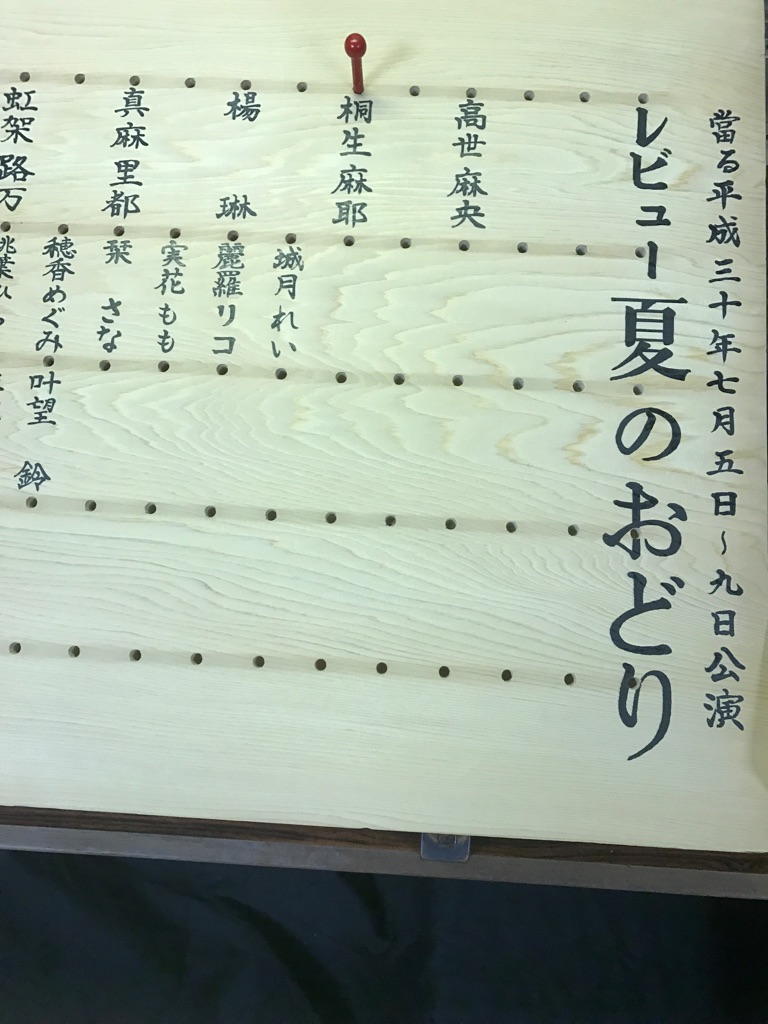 當る平成三十年七月五日~九日公演
レビュー夏のおどり
高世麻央
桐生麻耶
楊 琳
真麻里都
虹架路万
城月れい
麗羅リコ
実花もも
栞 さな
穂香めぐみ
叶望 鈴